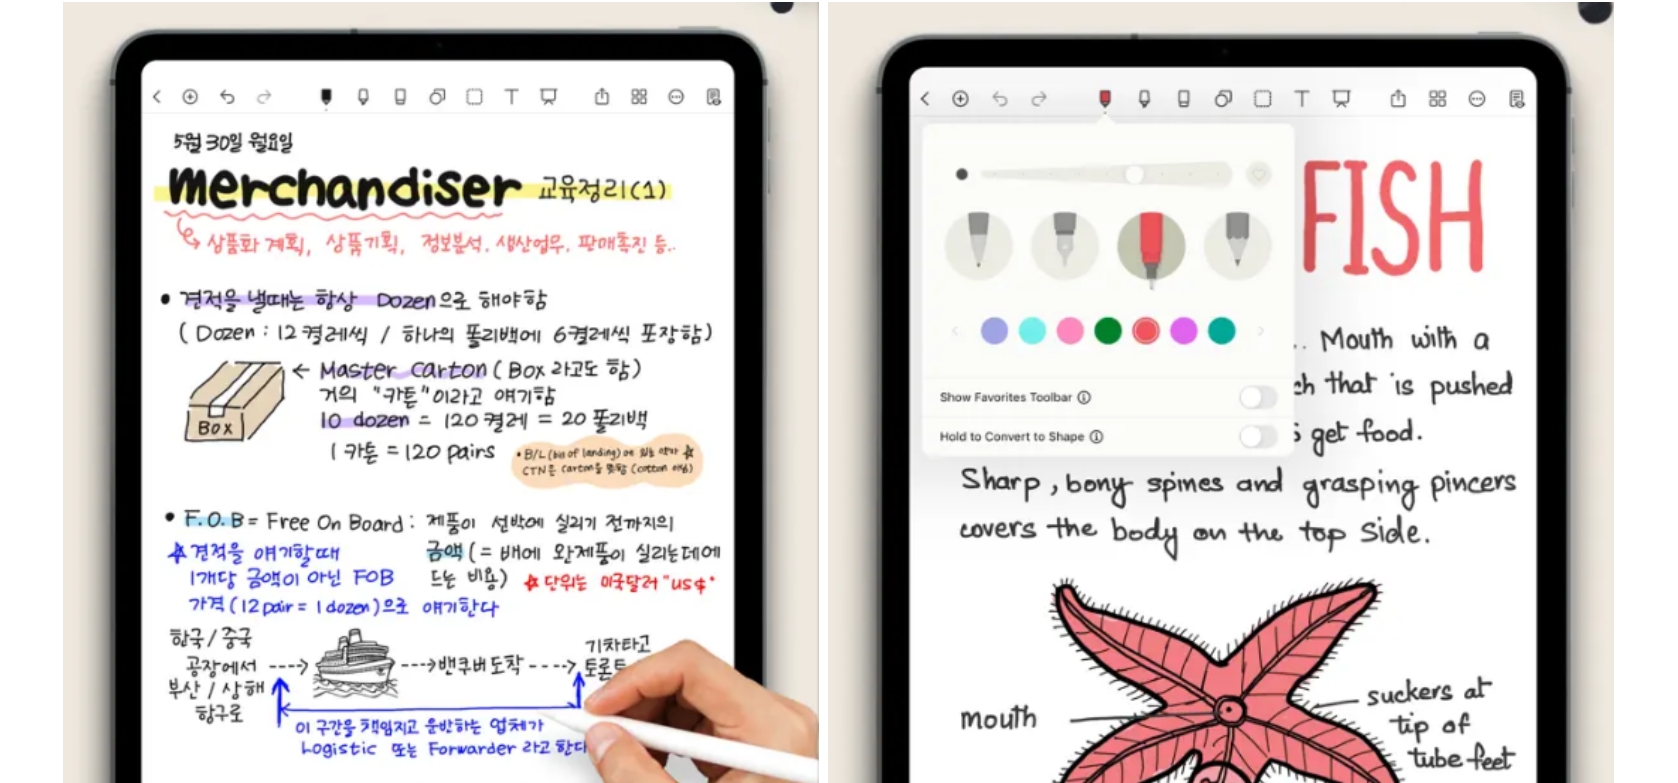 5월 30일 월요일
merchandiser 교육정리(1)
상품화 계획, 상품기획, 정보분석, 생산업무, 판매촉진 등..
• 견적을 낼때는 항상 Dozen으로 해야함
( Dozen : 12켤레씩 / 하나의 폴리백에 6켤레씩 포장함)
← Master carton ( Box 라고도 함)
거의 "카톤"이라고 얘기함
10 dozen = 120 켤레 = 20 폴리백
1 카톤 = 120 pairs
Box
• B/L (bill of landing) 에 있는 약자 ☆
CTN은 carton을 뜻함 (cotton 아님)
• F.O.B = Free On Board : 제품이 선박에 실리기 전까지의
금액 (= 배에 완제품이 실리는데에
드는 비용) ☆ 단위는 미국달러 "US$"
☆ 견적을 얘기할때
1개당 금액이 아닌 FOB
가격 (12pair = 1dozen)으로 얘기한다
한국 / 중국
공장에서
부산 / 상해
항구로
----> ---->밴쿠버 도착---->
기차타고
토론토
이 구간을 책임지고 운반하는 업체가
Logistic 또는 Forwarder 라고 한다
FISH
Show Favorites Toolbar
Hold to Convert to Shape
.. Mouth with a
ch that is pushed
get food.
Sharp, bony spines and grasping pincers
covers the body on the top side.
mouth
suckers at
tip of
tube feet